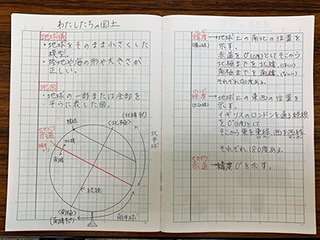 わたしたちの国土
地球儀
・地球をそのまま小さくした
模型。
・陸地や海の形や大きさが
正しい。
地図
・地球の一部または全部を
平らに表した図。
(北極)
赤道
経線
緯線
(南極)
緯度
→地球上の南北の位置を
示す。
赤道を0°(0度)としてそこから
北極までを北緯
南極までを南緯
それぞれ90度ある。
経度
→地球上の東西の位置を
示す。
イギリスのロンドンを通る経線
を0°(0度)として
そこから東を東経、西を西経
それぞれ180度ある。
赤道
→緯度0°を示す。